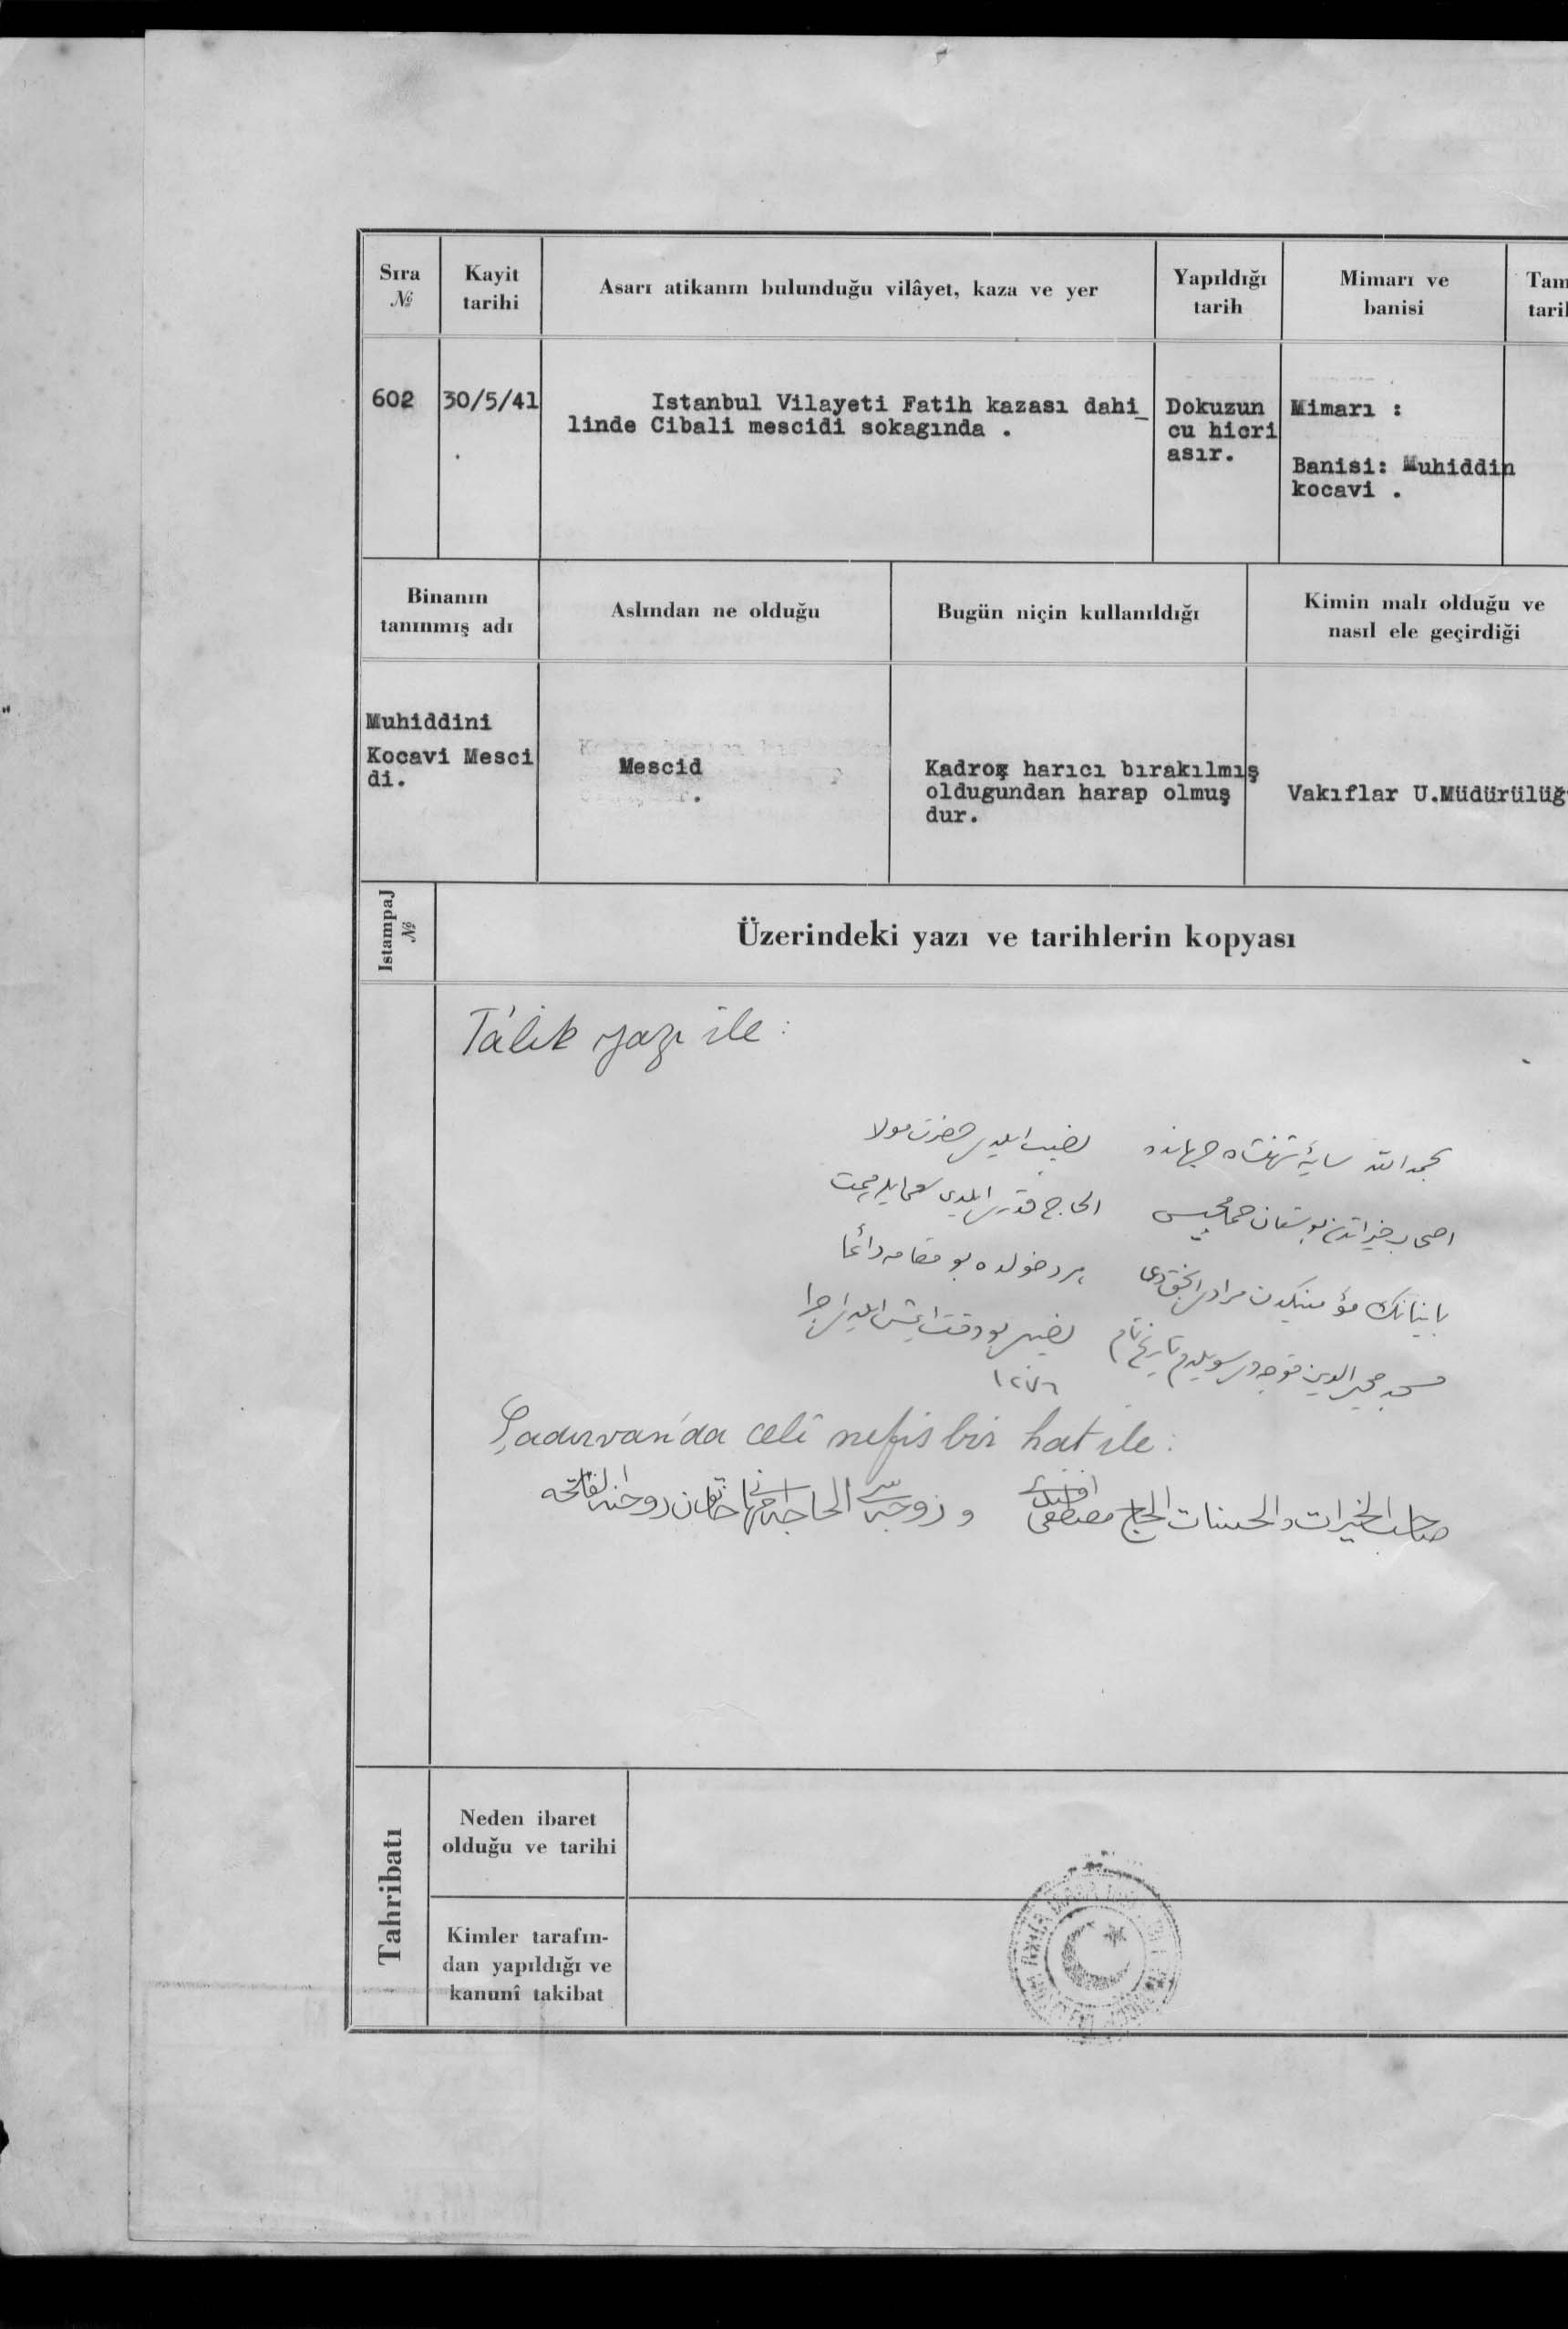 Sıra
№
Kayit
tarihi
Asarı atikanın bulunduğu vilâyet, kaza ve yer
Yapıldığı
tarih
Mimarı ve
banisi
Tam
tari
602
30/5/41
Istanbul Vilayeti Fatih kazası dahi_
linde Cibali mescidi sokagında .
Dokuzun
cu hicri
asır.
Mimarı :
Banisi: Muhiddin
kocavi .
Binanın
tanınmış adı
Aslından ne olduğu
Bugün niçin kullanıldığı
Kimin malı olduğu ve
nasıl ele geçirdiği
Muhiddini
Kocavi Mesci
di.
Mescid
.
Kadroş harıcı bırakılmış
oldugundan harap olmuş
dur.
Vakıflar U.Müdürülüğ
Istampaj
№
Üzerindeki yazı ve tarihlerin kopyası
Tâlik yazı ile :
بحمد الله سايۀ شهنشاه جهانده حضرت مولا
الحاج ايلدى
بو مقامه دائما
مسجد محيى الدين سويلدم تاريخ تام
١٢٧٦
Şadırvan'da celî nefis bir hat ile :
صاحب الخيرات والحسنات الحاج مصطفى افندى و زوجه سى الحاجه خاتون الفاتحه
Tahribatı
Neden ibaret
olduğu ve tarihi
Kimler tarafın-
dan yapıldığı ve
kanunî takibat